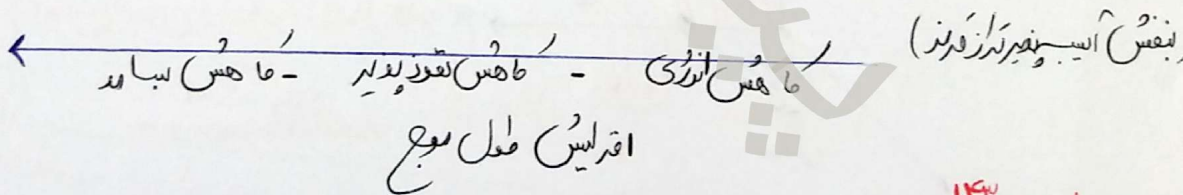 بنفش آسیب پذیرتر از قرمز)
کاهش انرژی - کاهش نفوذپذیر - کاهش بسامد
افزایش طول موج
۱۴۳